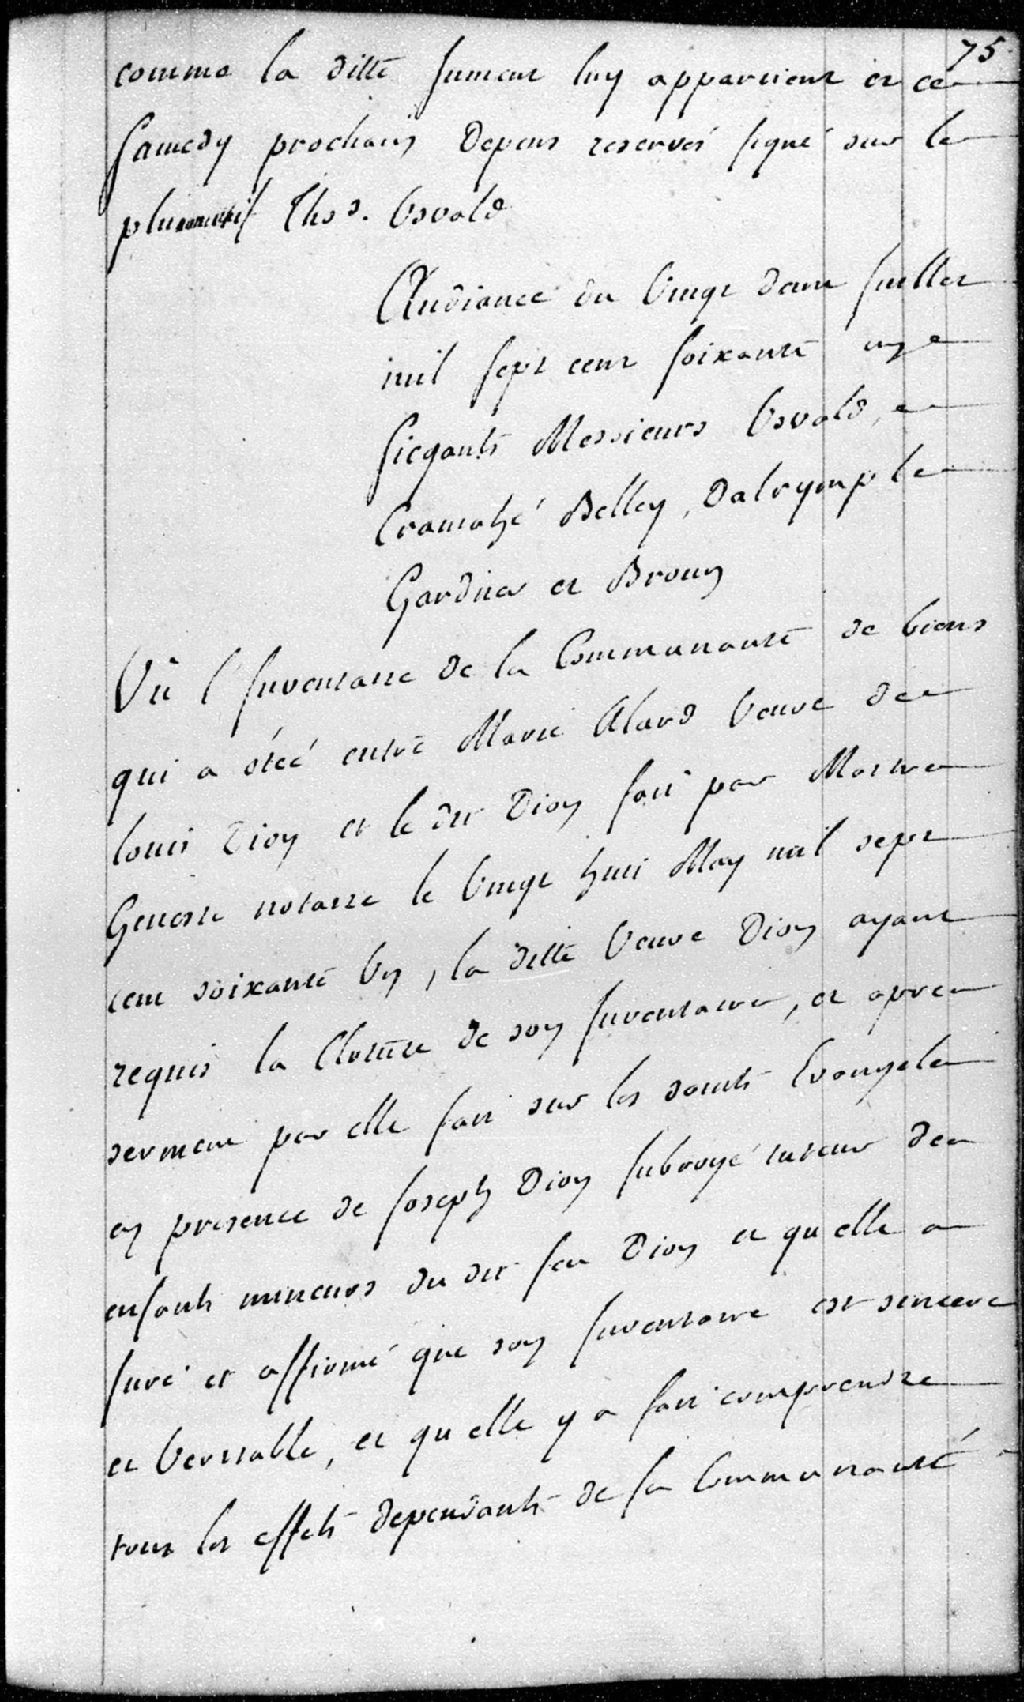 75
comme la ditte Jument luy appartient et ce
Samedy prochain Depens reservés signé sur le
plumitif Thos. Osvald
Audiance du Vingt deux Juillet
mil sept cent soixante un
Siegants Messieurs Osvald,
Cramahé Belley, Dalrymple
Gardner et Broun
Vû l'Inventaire de la Communauté de biens
qui a étéé entre Marie Alard Veuve de
Louis Dion et ledit Dion fait par Maitre
Genest notaire le Vingt huit May mil sept
cent soixante Un, la ditte Veuve Dion ayant
requis la Cloture de son Inventaire, et apres
serment par elle fait sur les saints Evangele
en presence de Joseph Dion subrogé tuteur des
enfants mineurs du dit feu Dion et qu elle a
Juré et affirmé que son Inventaire est sincere
et Veritable, et qu elle y a fait comprendre
tous les effets dependants de sa Communauté